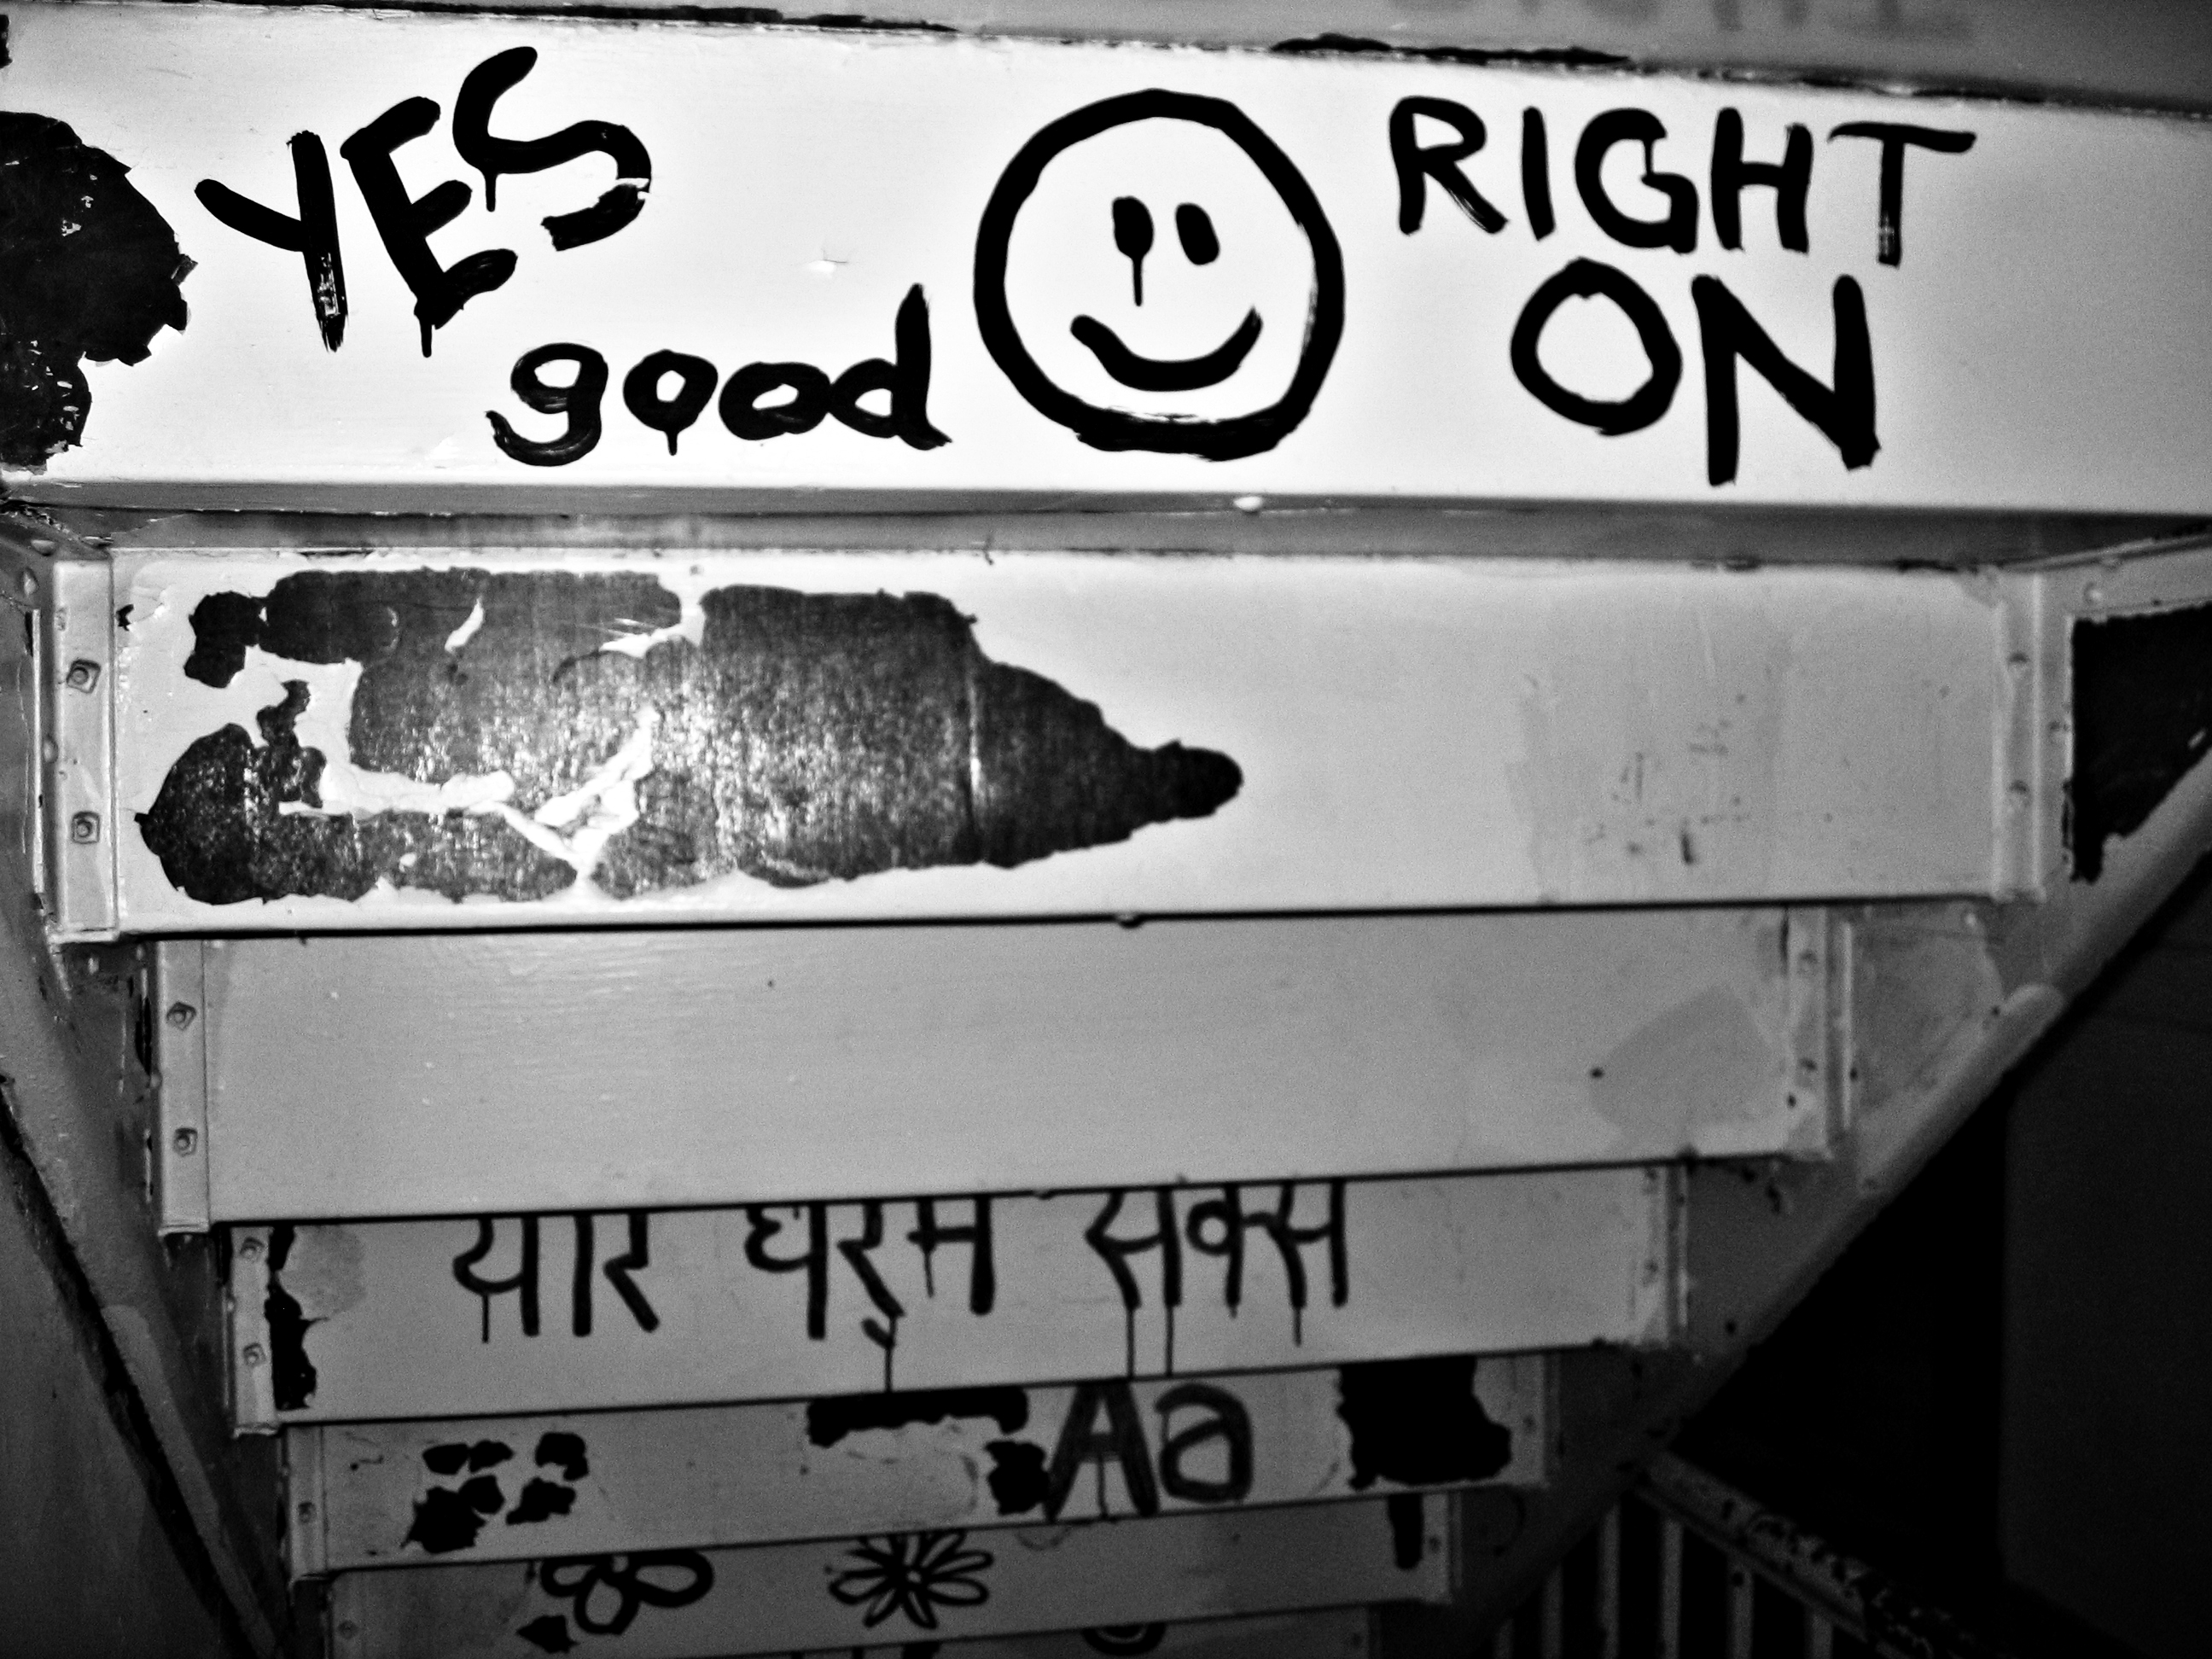 YES
good
RIGHT
ON
यार सक्स
Aa